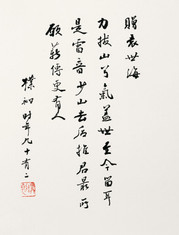 赠袁世海
力拔山兮气盖世至今留耳
是雷音少山去后推君最所
愿薪传更有人
朴初时年九十有二